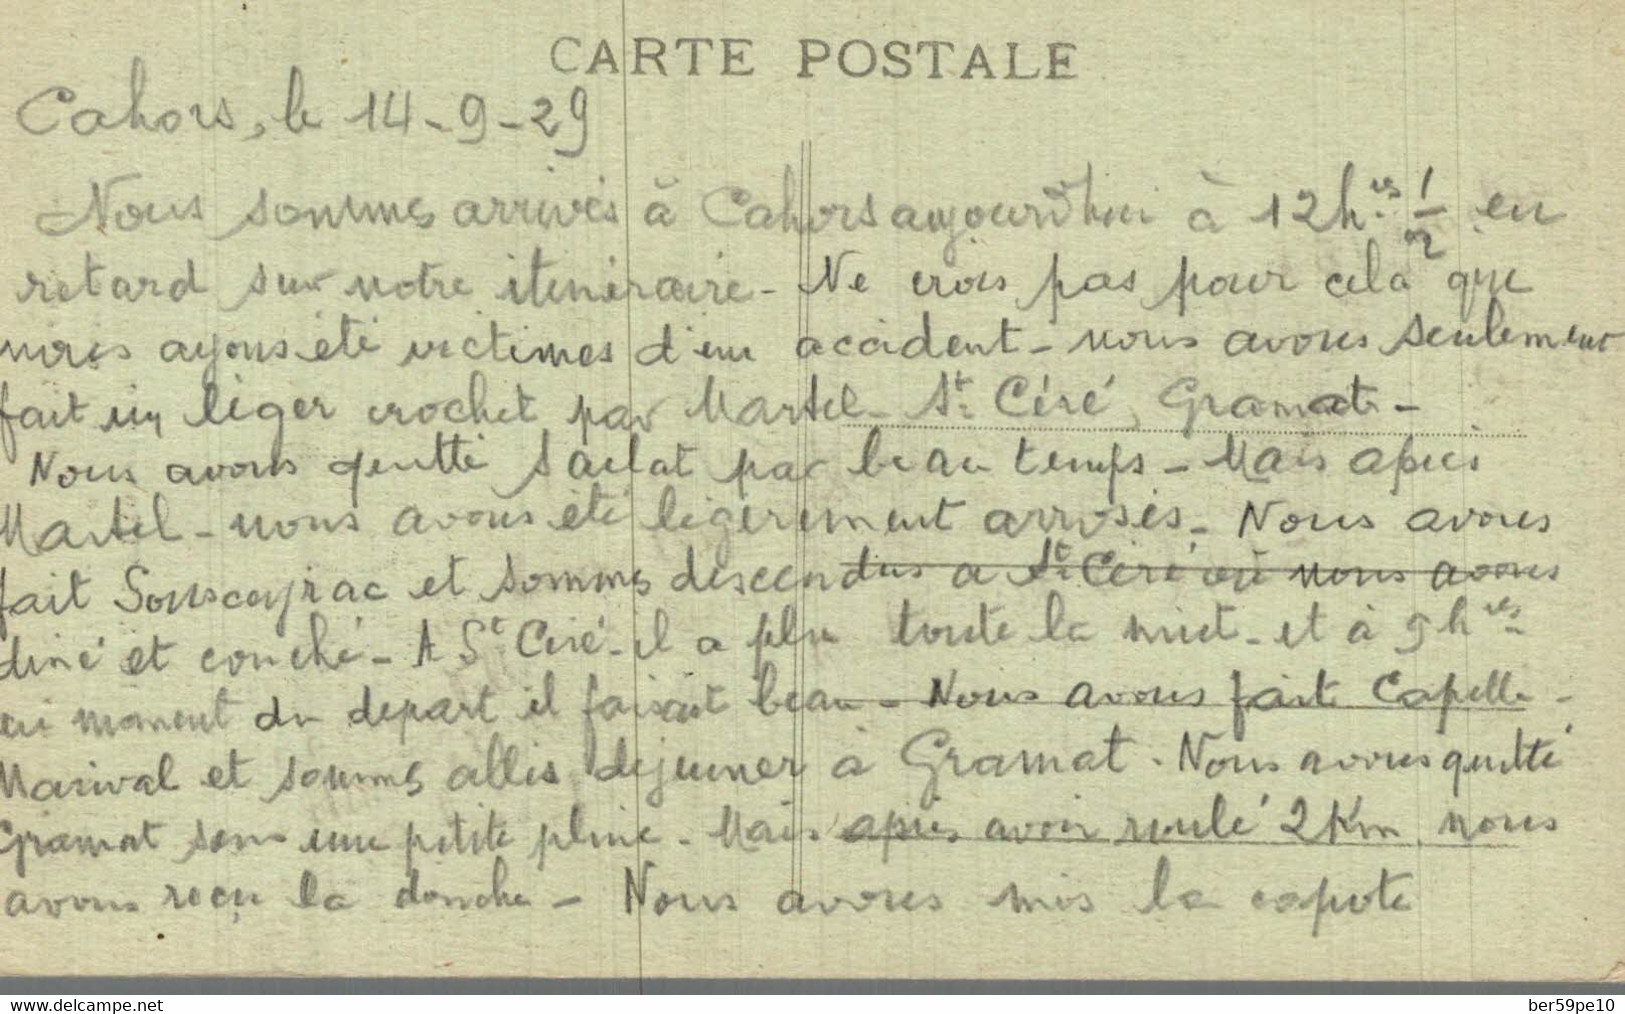 CARTE POSTALE
Cahors, le 14-9-29
Nous sommes arrivés à Cahors aujourd'hui à 12h.res 1/2 en
retard sur notre itinéraire - Ne crois pas pour cela que
nous ayons été victimes d'un accident - nous avons seulement
fait un léger crochet par Martel - St Céré, Gramat -
Nous avons quitté Sarlat par beau temps - Mais après
Martel - nous avons été légèrement arrosés - Nous avons
fait Sousceyrac et sommes descendus a St Céré où nous avons
diné et couché - A St Céré - il a plu toute la nuit - et à 9h res
au moment du depart il faisait beau - Nous avons fait Capelle -
Marival et sommes allés déjeuner à Gramat. Nous avons quitté
Gramat sous une petite pluie - Mais après avoir roulé 2 Km nous
avons reçu la douche - Nous avons mis la capote
www.delcampe.net
ber59pe10